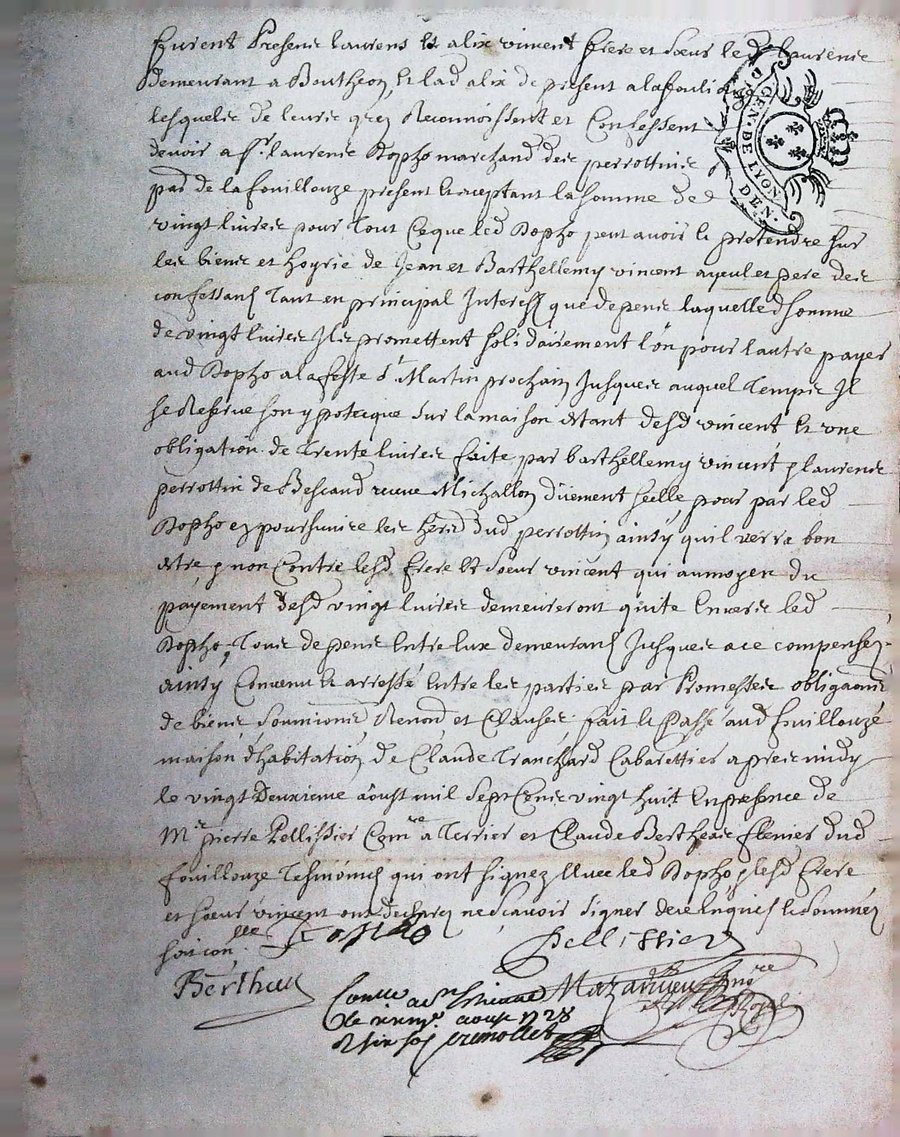 furent Presens laurens et alix vincent frere et soeur led laurens
demeurant a Boutheon, et lad alix de present a lafouli
lesquels de leurs grez Reconnoissent et Confessent
devoir a sr. laurens Kopho marchand des perrottins
par de lafouillouze present et aceptant la somme de
vingt livres pour Tout Ceque led Kopho peut avoir et pretendre sur
les biens et hoyrie de Jean et Barthellemy vincent ayeul et pere des
confessans Tant en principal Interest que depens laquelle d somme
de vingt livres Ils promettent solidairement l'on pour lautre payer
aud Kopho ala feste st Martin prochain Jusques auquel Temps Il
se Reserve son ypoteque sur la maison estant desd vincent et une
obligation de Trente livres faite par barthellemy vincent p laurens
perrottin de recue Michallon düement scelle, pour par led
Kopho en poursuivre les herers dud perrottin ainsy quil verra bon
estre, et non Contre lesd frere et Soeur vincent qui aumoyen du
payement desd vingt livres demeureront quite Envers led
Kopho, Tous depens Entre Eux demeurans Jusques ace compensez
ainsy Convenu et arresté Entre les parties par Promesses obligaons
de biens Soumions Renons et Clauses. fait et Passé aud fouillouze
maison d'habitation de Claude Tranchard Cabarettier apres midy
le vingt Deuxieme aoust mil Sept Cens vingt huit En presence de
Mre pierre Pellissier Comre a Terrier et Claude Bertheas dud
fouillouze Tesmoins qui ont signez Avec led Kopho, et lesd frere
et soeur vincent ont declarez ne scavoir signer de ce Enquis et sommez
soit con.lle
Pellissier
Bertheas
Mazanieu Nore Royal
Conlle a St Etienne
le aoust 1728
GEN. DE LYON
DEN.